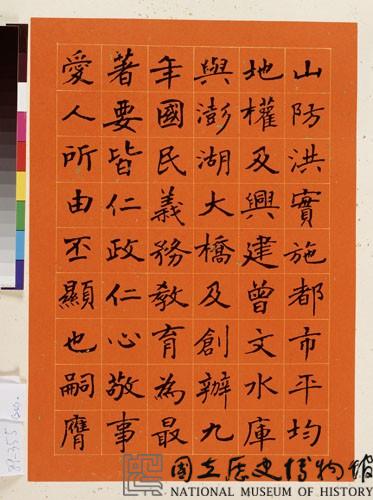 山防洪實施都市平均
地權及興建曾文水庫
與澎湖大橋及創辦九
年國民義務教育為最
著要皆仁政仁心敬事
愛人所由丕顯也嗣膺
國立歷史博物館
NATIONAL MUSEUM OF HISTORY